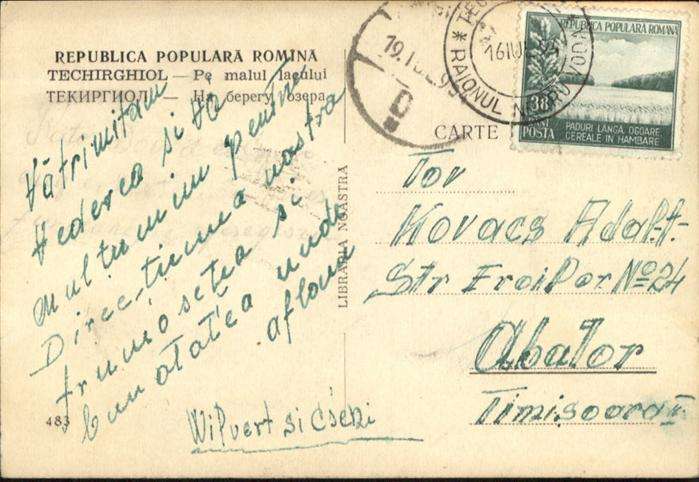 REPUBLICA POPULARĂ ROMÎNĂ
TECHIRGHIOL — Pe malul lacului
ТЕКИРГИОЛ — На берегу озера
Vă trimitam
Vederea si va
multumim pentru
Direcțiunea noastra
frumosețea si
bunatatea unde
aflam
Wilvert si Cseni
483
LIBRĂRIA NOASTRĂ
CARTE
19.
D
16 IUL
RAIONUL NEGRU VODA
REPUBLICA POPULARA ROMÂNA
38
BANI
POSTA
PADURI LANGA OGOARE
CEREALE IN HAMBARE
Tov
Kovacs Adal-t.
Str Eroilor No 24
Abator
Timisoara I